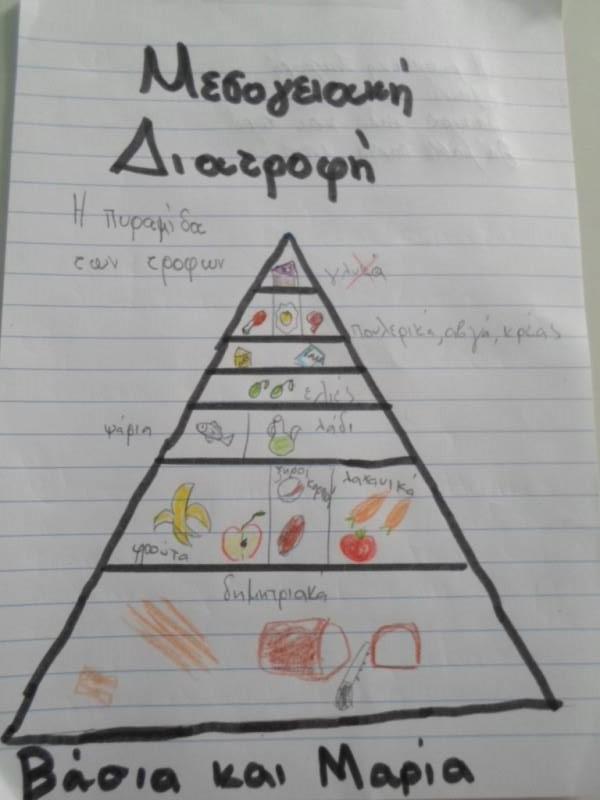 Μεσογειακή
Διατροφή
Η πυραμίδα
των τροφων
γλυκα
πουλερικά, αβγά, κρέας
ελιές
ψάρια
λάδι
ξηροί
καρποί
λαχανικά
φρούτα
δημητριακά
Βάσια και Μαρία